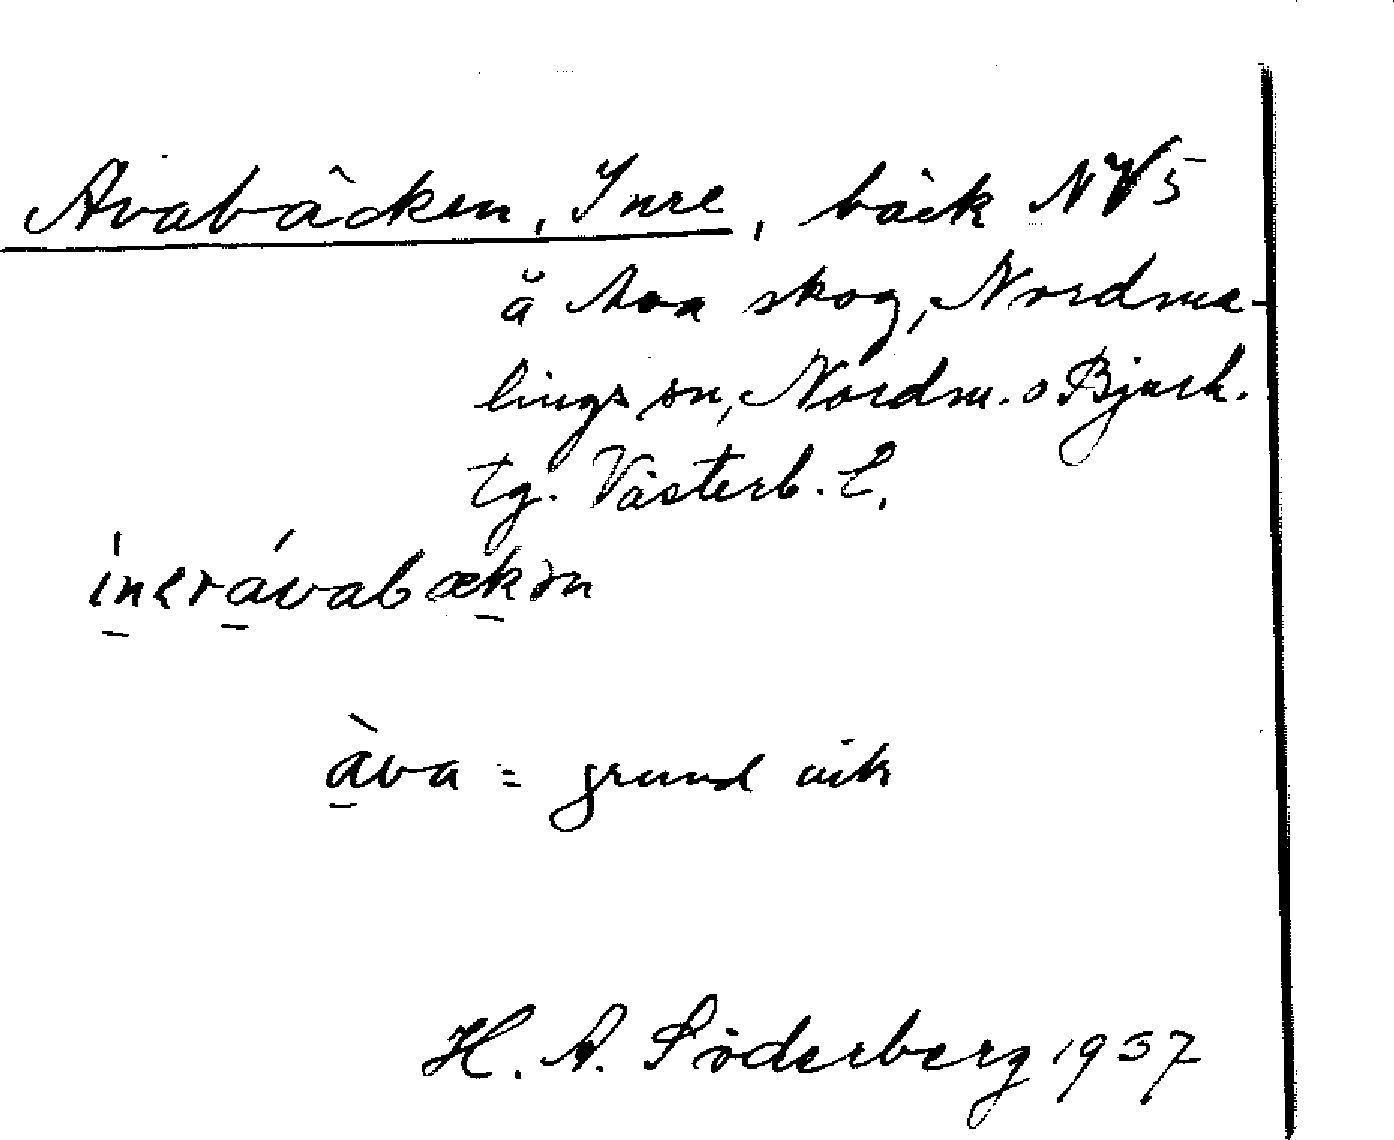 Avabäcken, Inre, bäck NV5
å Ava skog, Nordma-
lings sn, Nordm. o Bjurh.
tg. Västerb. L.
ínerávabækən
àva = grund vik
H. A. Söderberg 1937